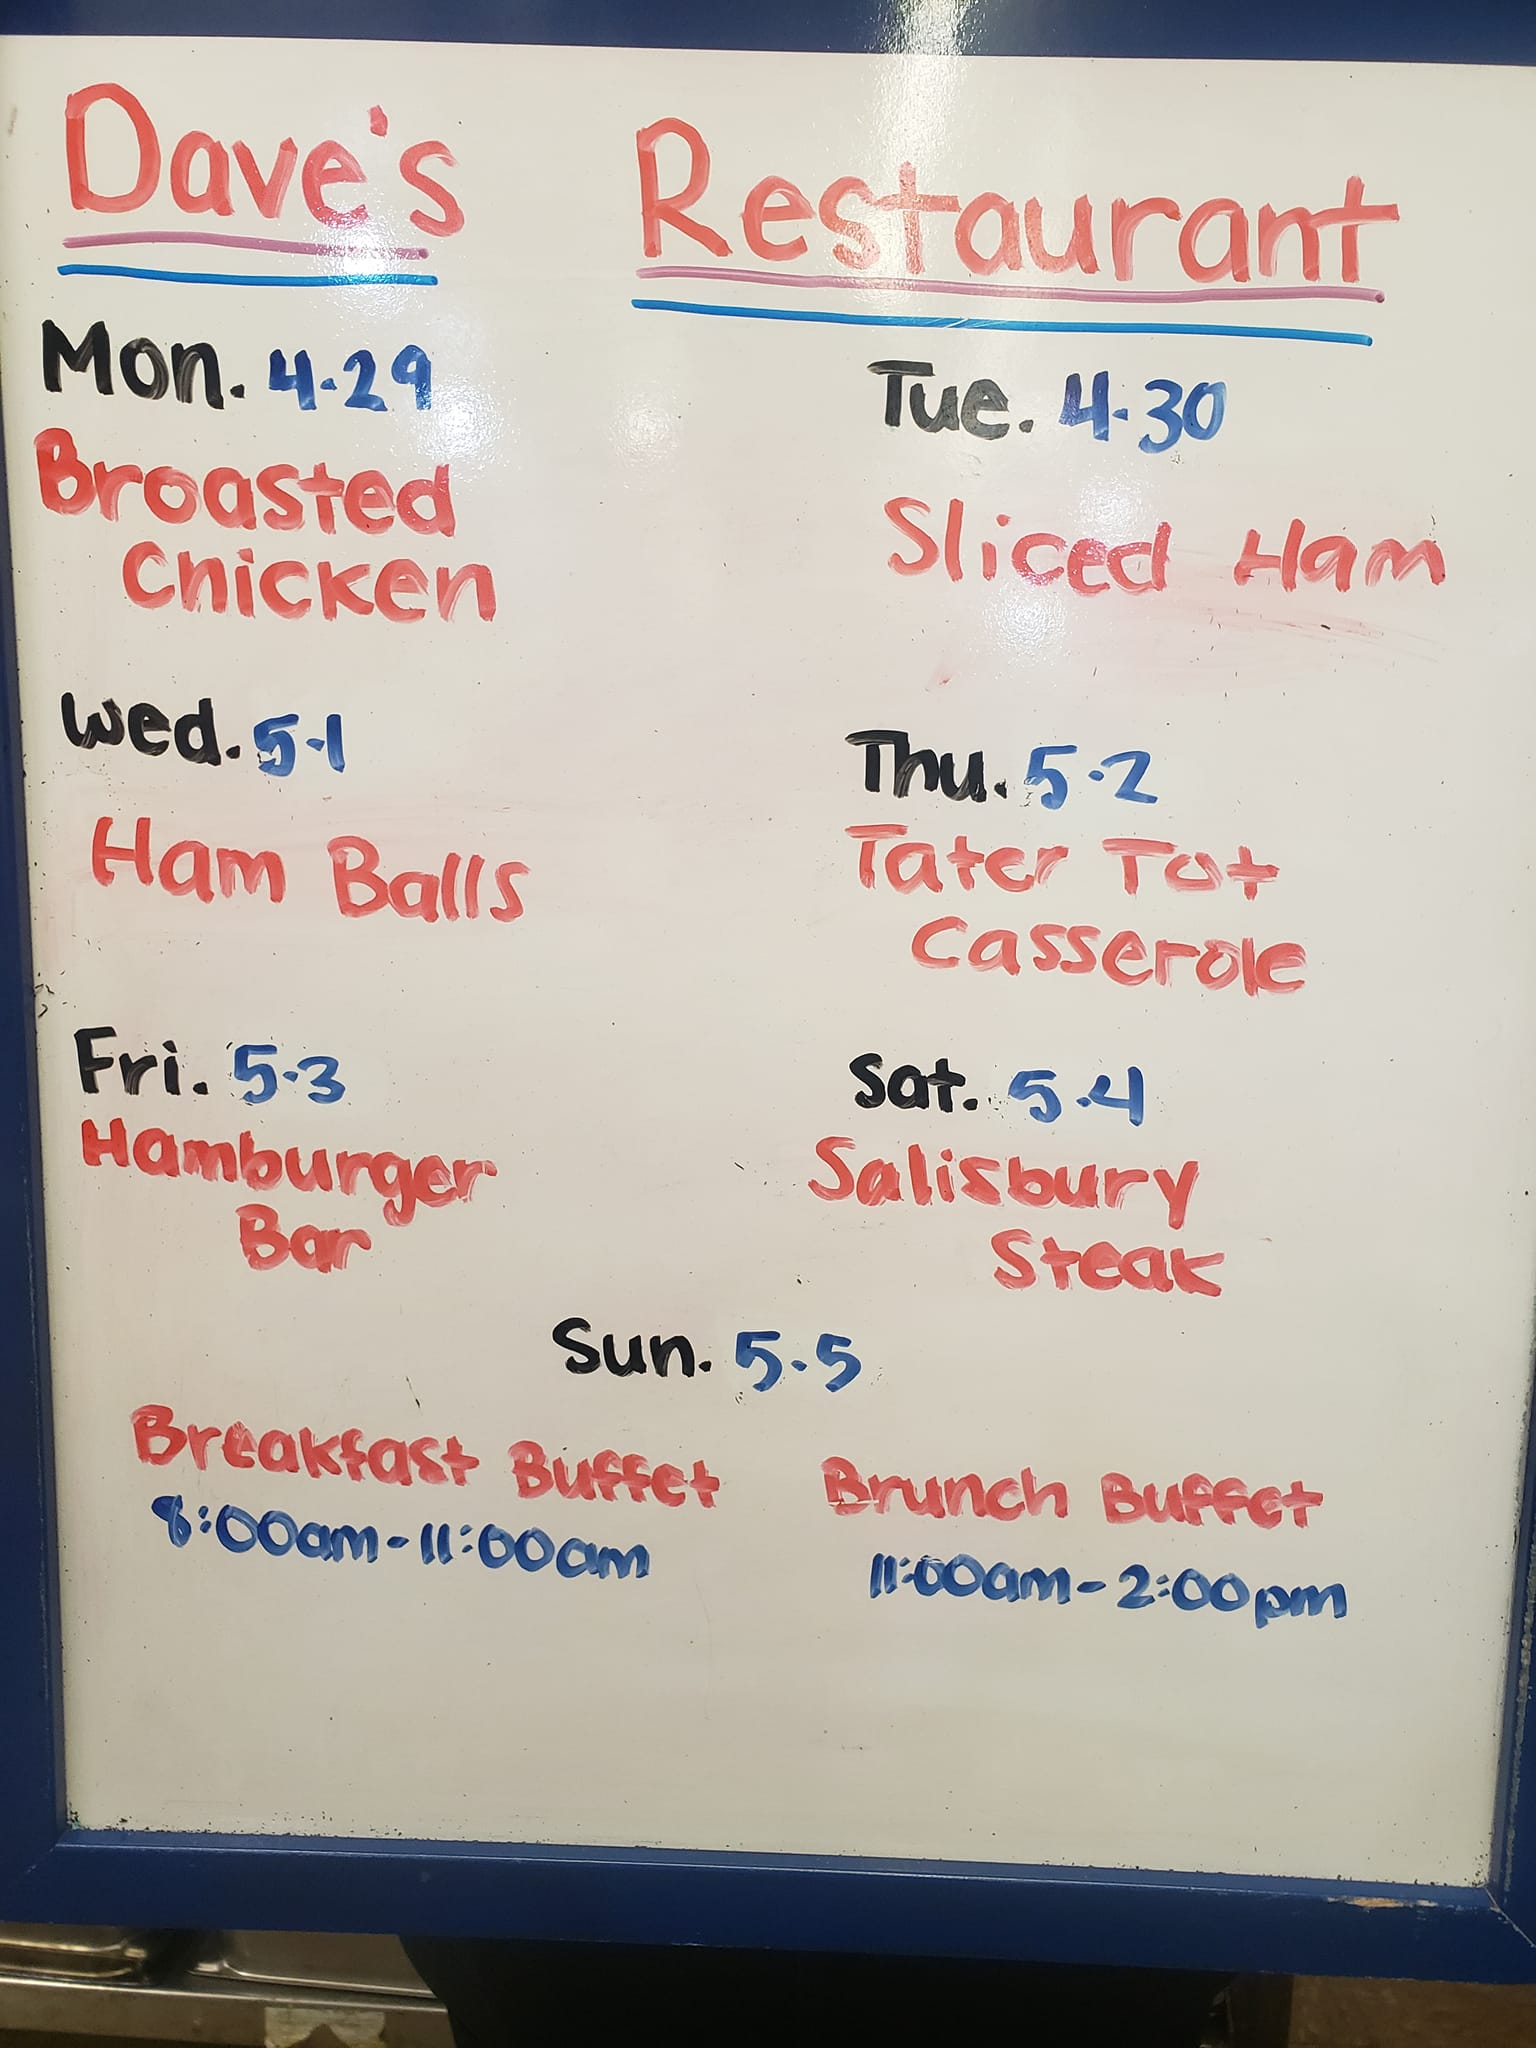 Dave's Restaurant
Mon. 4.29
Broasted
Chicken
Tue. 4.30
Sliced Ham
Wed. 5.1
Ham Balls
Thu. 5.2
Tater Tot
Casserole
Fri. 5.3
Hamburger
Bar
Sat. 5.4
Salisbury
Steak
Sun. 5.5
Breakfast Buffet
8:00am-11:00am
Brunch Buffet
11:00am-2:00pm